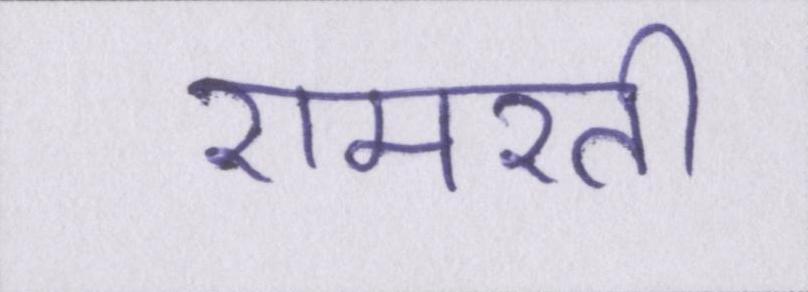 रामरती